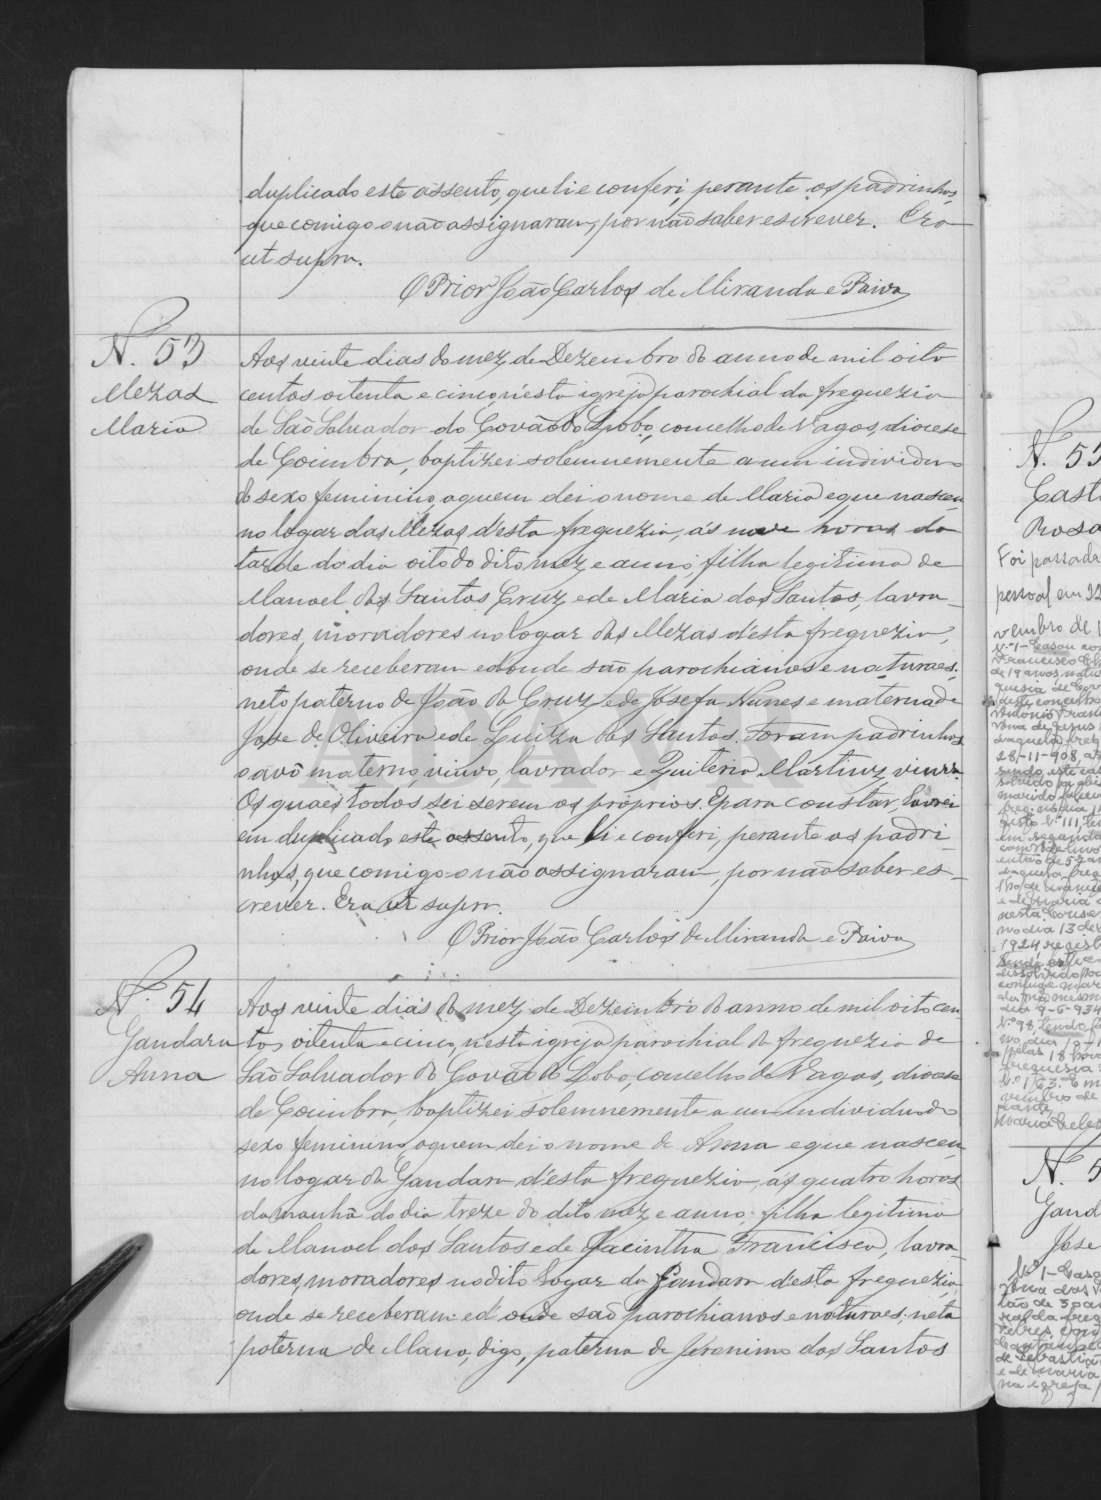 duplicado este assento, que li e conferi, perante os padrinhos,
que comigo o não assignaram, por não saber escrever. Era
ut supra.
O Prior João Carlos de Miranda e Paiva
N. 53
Mezas
Maria
Aos vinte dias do mez de Dezembro do anno de mil oito
centos oitenta e cinco, n'esta igreja parochial da freguezia
de São Salvador do Covão do Lobo, concelho de Vagos, diocese
de Coimbra, baptizei solemnemente a um individuo
do sexo feminino, a quem dei o nome de Maria e que nasceu
no logar das Mezas d'esta freguezia, ás nove horas da
tarde do dia oito do dito mez e anno, filha legitima de
Manoel dos Santos Cruz, e de Maria dos Santos, lavra-
dores, moradores no logar das Mezas d'esta freguezia,
onde se receberam e d'onde são parochianos e naturaes;
neto paterno de João da Cruz e de Josefa Nunes e materna de
Jose de Oliveira e de Luiza dos Santos. Foram padrinhos
o avô materno, viuvo, lavrador e Quiteria Martins, viuva.
Os quaes todos sei serem os proprios. E para constar, lavrei
em duplicado este assento, que li e conferi, perante os padri-
nhos, que comigo o não assignaram, por não saber es-
crever. Era ut supra.
O Prior João Carlos de Miranda e Paiva
N. 54
Gandara
Anna
Aos vinte dias do mez de Dezembro do anno de mil oito cen-
tos oitenta e cinco, n'esta igreja parochial da freguezia de
São Salvador do Covão do Lobo, concelho de Vagos, diocese
de Coimbra, baptizei solemnemente a um individuo do
sexo feminino, a quem dei o nome de Anna e que nasceu
no logar da Gandara d'esta freguezia, ás quatro horas
da manhã do dia treze do dito mez e anno, filha legitima
de Manoel dos Santos e de Jacintha Francisca, lavra-
dores, moradores no dito logar da Gandara d'esta freguezia,
onde se receberam e d'onde são parochianos e naturaes; neta
paterna de Mano, digo, paterna de Jeronimo dos Santos
N. 55
Rosa
Foi passada
pessoal em 22
vembro de 1
N.º 1 - Casou
de 19 anos
deste concelho
28-11-908
no dia 13 de
1924
N.º 98
N. 5
Gand
Jose
N.º 1 - Caso
de Sebastião
e de Maria
na egreja